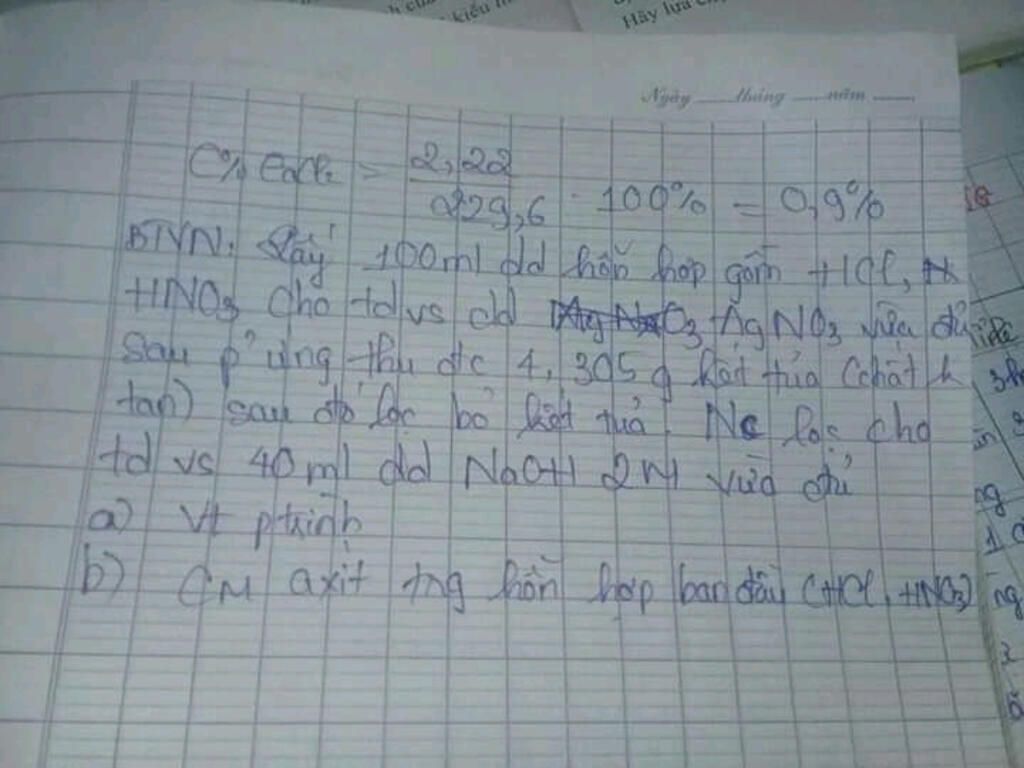 Hãy lựa
kiểu
Ngày tháng năm
C% CaCl2 = 2,22 / 229,6 . 100% = 0,9%
BTVN: Lấy 100ml dd hỗn hợp gồm HCl,
HNO3 cho td vs dd AgNO3 vừa đủ
sau p' ứng thu đc 4,305g kết tủa (chất k
tan) sau đó lọc bỏ kết tủa. Nc lọc cho
td vs 40 ml dd NaOH 2M vừa đủ
a) Vt ptrình
b) CM axit tng hỗn hợp ban đầu (HCl, HNO3)